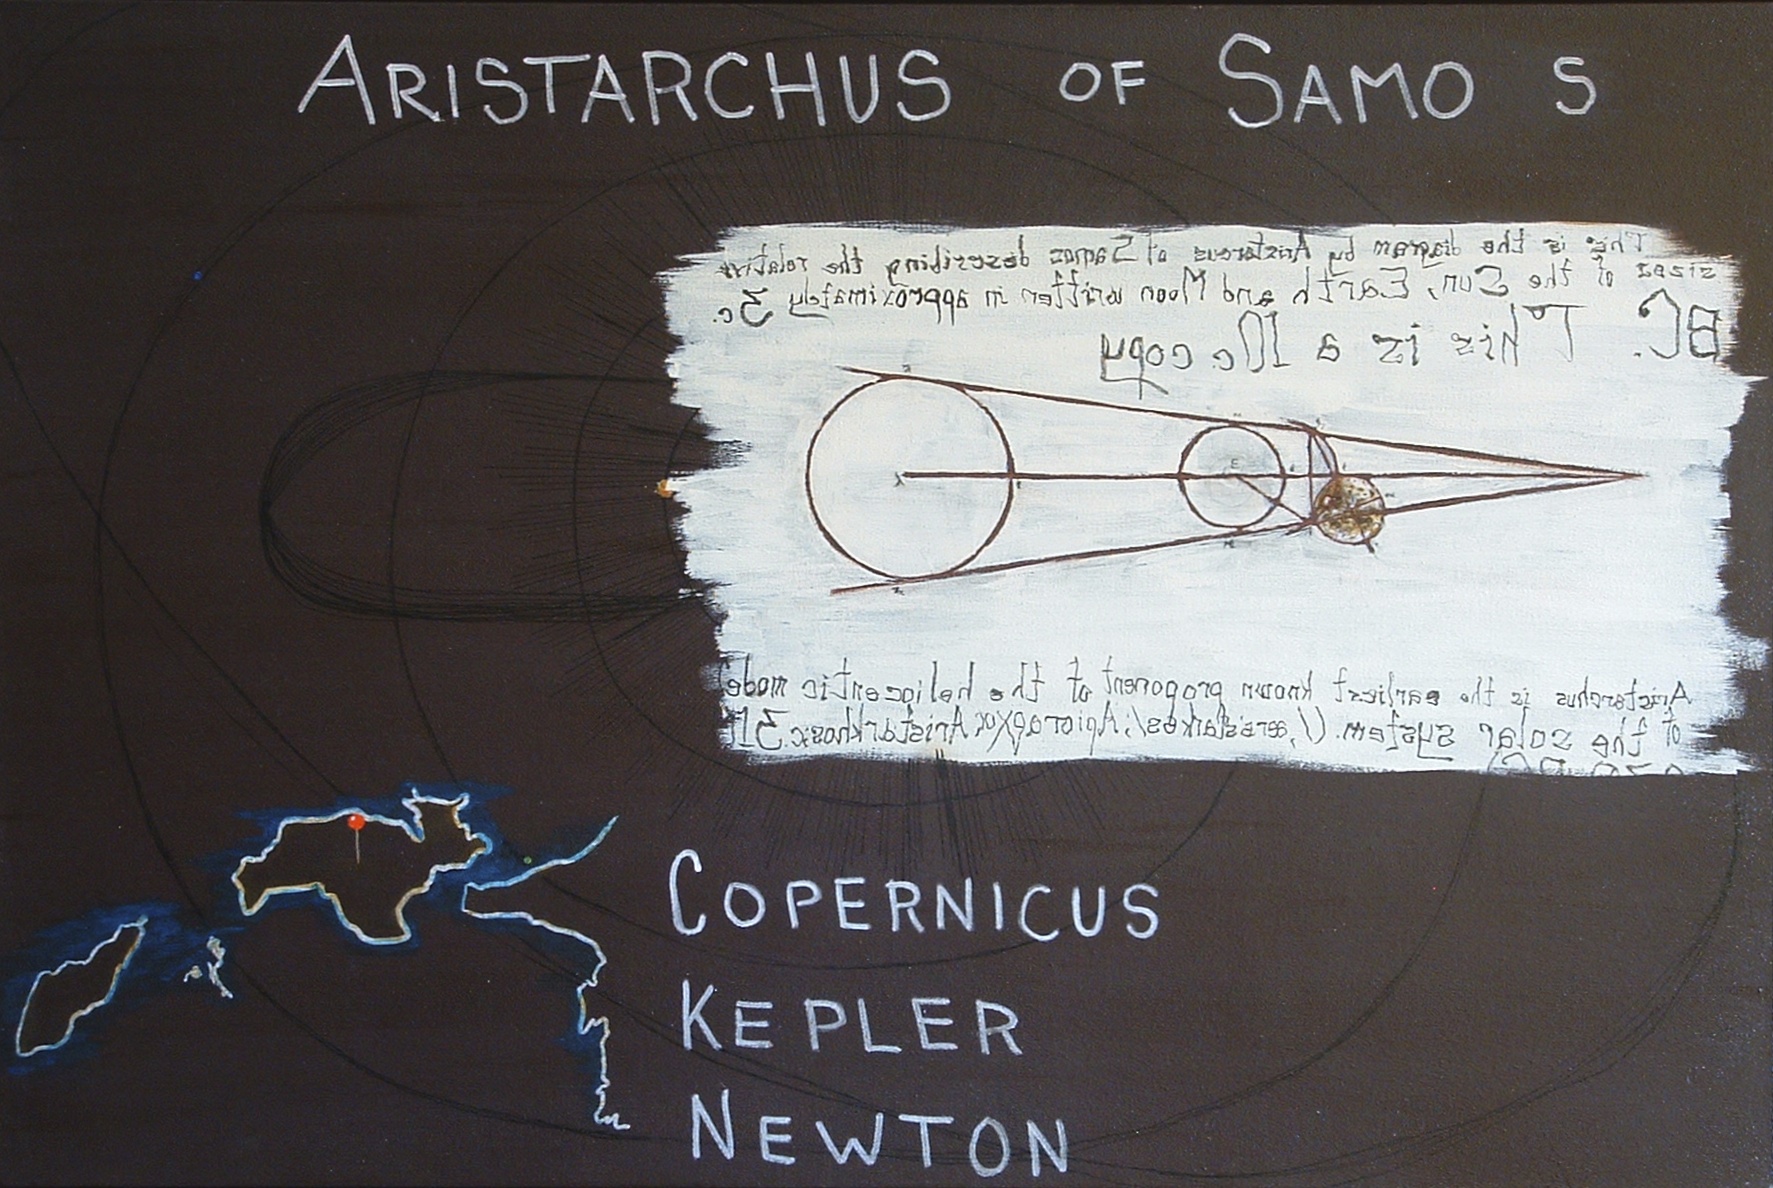 ARISTARCHUS OF SAMOS
This is the diagram by Aristarcus of Samos describing the relative
sizes of the Sun, Earth and Moon written in approximately 3c.
BC. This is a 10c. copy
Aristarchus is the earliest known proponent of the heliocentric model
of the solar system. Aristarkhos; c. 31
COPERNICUS
KEPLER
NEWTON